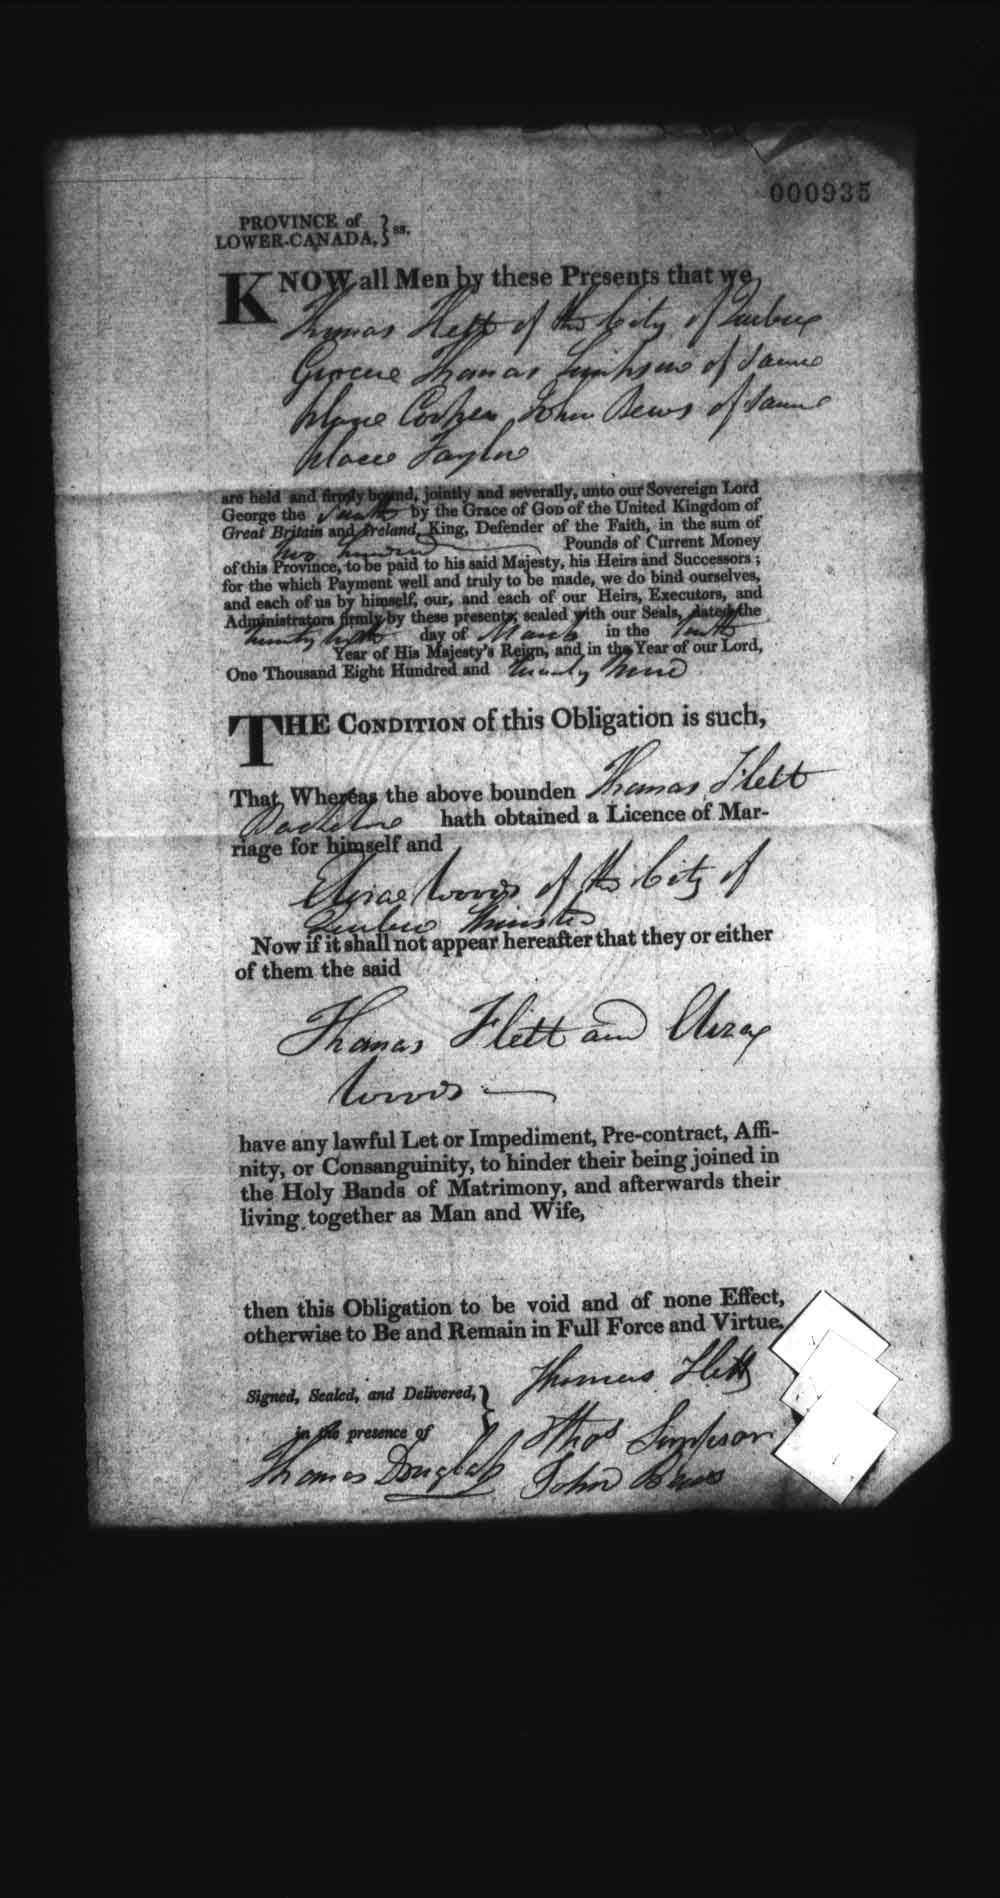 000935
PROVINCE of
LOWER-CANADA, } ss.
KNOW all Men by these Presents that we,
Thomas Flett of the City of Quebec
Grocer Thomas Simpson of same
place Cooper John Bews of same
place Taylor
are held and firmly bound, jointly and severally, unto our Sovereign Lord
George the fourth by the Grace of GOD of the United Kingdom of
Great Britain and Ireland, King, Defender of the Faith, in the sum of
two hundred Pounds of Current Money
of this Province, to be paid to his said Majesty, his Heirs and Successors;
for the which Payment well and truly to be made, we do bind ourselves,
and each of us by himself, our, and each of our Heirs, Executors, and
Administrators firmly by these presents; sealed with our Seals, dated the
day of March in the
Year of His Majesty's Reign, and in the Year of our Lord,
One Thousand Eight Hundred and twenty nine
THE CONDITION of this Obligation is such,
That Whereas the above bounden Thomas Flett
Bachelor hath obtained a Licence of Mar-
riage for himself and
Eliza Woods of the City of
Quebec Spinster
Now if it shall not appear hereafter that they or either
of them the said
Thomas Flett and Eliza
Woods
have any lawful Let or Impediment, Pre-contract, Affi-
nity, or Consanguinity, to hinder their being joined in
the Holy Bands of Matrimony, and afterwards their
living together as Man and Wife,
then this Obligation to be void and of none Effect,
otherwise to Be and Remain in Full Force and Virtue.
Thomas Flett
Signed, Sealed, and Delivered, }
in the presence of
Thos Simpson
Thomas Douglass
John Bews